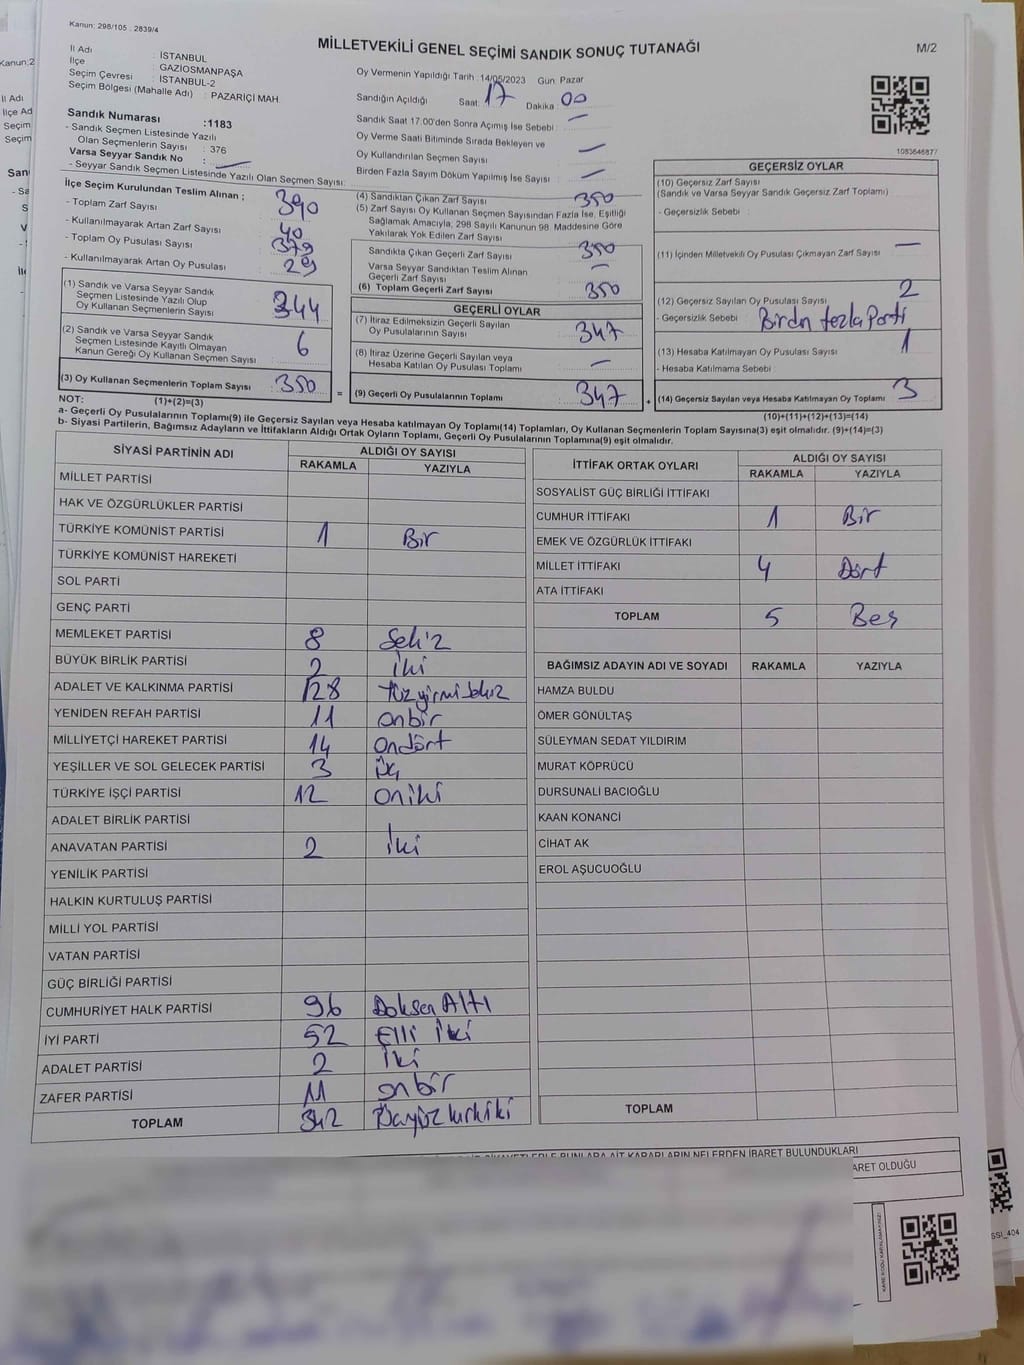 Kanun: 298/105 : 2839/4
MİLLETVEKİLİ GENEL SEÇİMİ SANDIK SONUÇ TUTANAĞI
M/2
İl Adı : İSTANBUL
İlçe : GAZİOSMANPAŞA
Seçim Çevresi : İSTANBUL-2
Seçim Bölgesi (Mahalle Adı) : PAZARİÇİ MAH.
Sandık Numarası :1183
- Sandık Seçmen Listesinde Yazılı
Olan Seçmenlerin Sayısı : 376
Varsa Seyyar Sandık No :
- Seyyar Sandık Seçmen Listesinde Yazılı Olan Seçmen Sayısı:
Oy Vermenin Yapıldığı Tarih : 14/05/2023 Gün: Pazar
Sandığın Açıldığı Saat: 17 Dakika : 00
Sandık Saat 17.00'den Sonra Açımış İse Sebebi :
Oy Verme Saati Bitiminde Sırada Bekleyen ve
Oy Kullandırılan Seçmen Sayısı
Birden Fazla Sayım Döküm Yapılmış İse Sayısı :
1083646877
İlçe Seçim Kurulundan Teslim Alınan ;
- Toplam Zarf Sayısı : 390
- Kullanılmayarak Artan Zarf Sayısı : 40
- Toplam Oy Pusulası Sayısı : 379
- Kullanılmayarak Artan Oy Pusulası : 29
(1) Sandık ve Varsa Seyyar Sandık
Seçmen Listesinde Yazılı Olup
Oy Kullanan Seçmenlerin Sayısı 344
(2) Sandık ve Varsa Seyyar Sandık
Seçmen Listesinde Kayıtlı Olmayan
Kanun Gereği Oy Kullanan Seçmen Sayısı : 6
(3) Oy Kullanan Seçmenlerin Toplam Sayısı : 350 =
(4) Sandıktan Çıkan Zarf Sayısı 350
(5) Zarf Sayısı Oy Kullanan Seçmen Sayısından Fazla İse, Eşitliği
Sağlamak Amacıyla, 298 Sayılı Kanunun 98. Maddesine Göre
Yakılarak Yok Edilen Zarf Sayısı
Sandıkta Çıkan Geçerli Zarf Sayısı 350
Varsa Seyyar Sandıktan Teslim Alınan
Geçerli Zarf Sayısı
(6) Toplam Geçerli Zarf Sayısı : 350
GEÇERLİ OYLAR
(7) İtiraz Edilmeksizin Geçerli Sayılan
Oy Pusulalarının Sayısı: 347
(8) İtiraz Üzerine Geçerli Sayılan veya
Hesaba Katılan Oy Pusulası Toplamı
(9) Geçerli Oy Pusulalarının Toplamı : 347 +
GEÇERSİZ OYLAR
(10) Geçersiz Zarf Sayısı
(Sandık ve Varsa Seyyar Sandık Geçersiz Zarf Toplamı)
- Geçersizlik Sebebi :
(11) İçinden Milletvekili Oy Pusulası Çıkmayan Zarf Sayısı :
(12) Geçersiz Sayılan Oy Pusulası Sayısı : 2
- Geçersizlik Sebebi : Birdn fazla Parti
(13) Hesaba Katılmayan Oy Pusulası Sayısı : 1
- Hesaba Katılmama Sebebi :
(14) Geçersiz Sayılan veya Hesaba Katılmayan Oy Toplamı : 3
NOT: (1)+(2)=(3)
(10)+(11)+(12)+(13)=(14)
a- Geçerli Oy Pusulalarının Toplamı(9) ile Geçersiz Sayılan veya Hesaba katılmayan Oy Toplamı(14) Toplamları, Oy Kullanan Seçmenlerin Toplam Sayısına(3) eşit olmalıdır. (9)+(14)=(3)
b- Siyasi Partilerin, Bağımsız Adayların ve İttifakların Aldığı Ortak Oyların Toplamı, Geçerli Oy Pusulalarının Toplamına(9) eşit olmalıdır.
SİYASİ PARTİNİN ADI ALDIĞI OY SAYISI
RAKAMLA YAZIYLA
MİLLET PARTİSİ
HAK VE ÖZGÜRLÜKLER PARTİSİ
TÜRKİYE KOMÜNİST PARTİSİ 1 Bir
TÜRKİYE KOMÜNİST HAREKETİ
SOL PARTİ
GENÇ PARTİ
MEMLEKET PARTİSİ 8 Sekiz
BÜYÜK BİRLİK PARTİSİ 2 iki
ADALET VE KALKINMA PARTİSİ 128 Yüzyirmisekiz
YENİDEN REFAH PARTİSİ 11 onbir
MİLLİYETÇİ HAREKET PARTİSİ 14 ondört
YEŞİLLER VE SOL GELECEK PARTİSİ 3 üç
TÜRKİYE İŞÇİ PARTİSİ 12 oniki
ADALET BİRLİK PARTİSİ
ANAVATAN PARTİSİ 2 iki
YENİLİK PARTİSİ
HALKIN KURTULUŞ PARTİSİ
MİLLİ YOL PARTİSİ
VATAN PARTİSİ
GÜÇ BİRLİĞİ PARTİSİ
CUMHURİYET HALK PARTİSİ 96 Doksan Altı
İYİ PARTİ 52 Elli iki
ADALET PARTİSİ 2 iki
ZAFER PARTİSİ 11 onbir
TOPLAM 342 Üçyüz kırkiki
İTTİFAK ORTAK OYLARI ALDIĞI OY SAYISI
RAKAMLA YAZIYLA
SOSYALİST GÜÇ BİRLİĞİ İTTİFAKI
CUMHUR İTTİFAKI 1 Bir
EMEK VE ÖZGÜRLÜK İTTİFAKI
MİLLET İTTİFAKI 4 Dört
ATA İTTİFAKI
TOPLAM 5 Beş
BAĞIMSIZ ADAYIN ADI VE SOYADI RAKAMLA YAZIYLA
HAMZA BULDU
ÖMER GÖNÜLTAŞ
SÜLEYMAN SEDAT YILDIRIM
MURAT KÖPRÜCÜ
DURSUNALİ BACIOĞLU
KAAN KONANCİ
CİHAT AK
EROL AŞUCUOĞLU
TOPLAM
ŞİKAYETLERLE BUNLARA AİT KARARLARIN NELERDEN İBARET BULUNDUKLARI
ARET OLDUĞU
KARE KODU KARALAMAYINIZ!
SSI_404